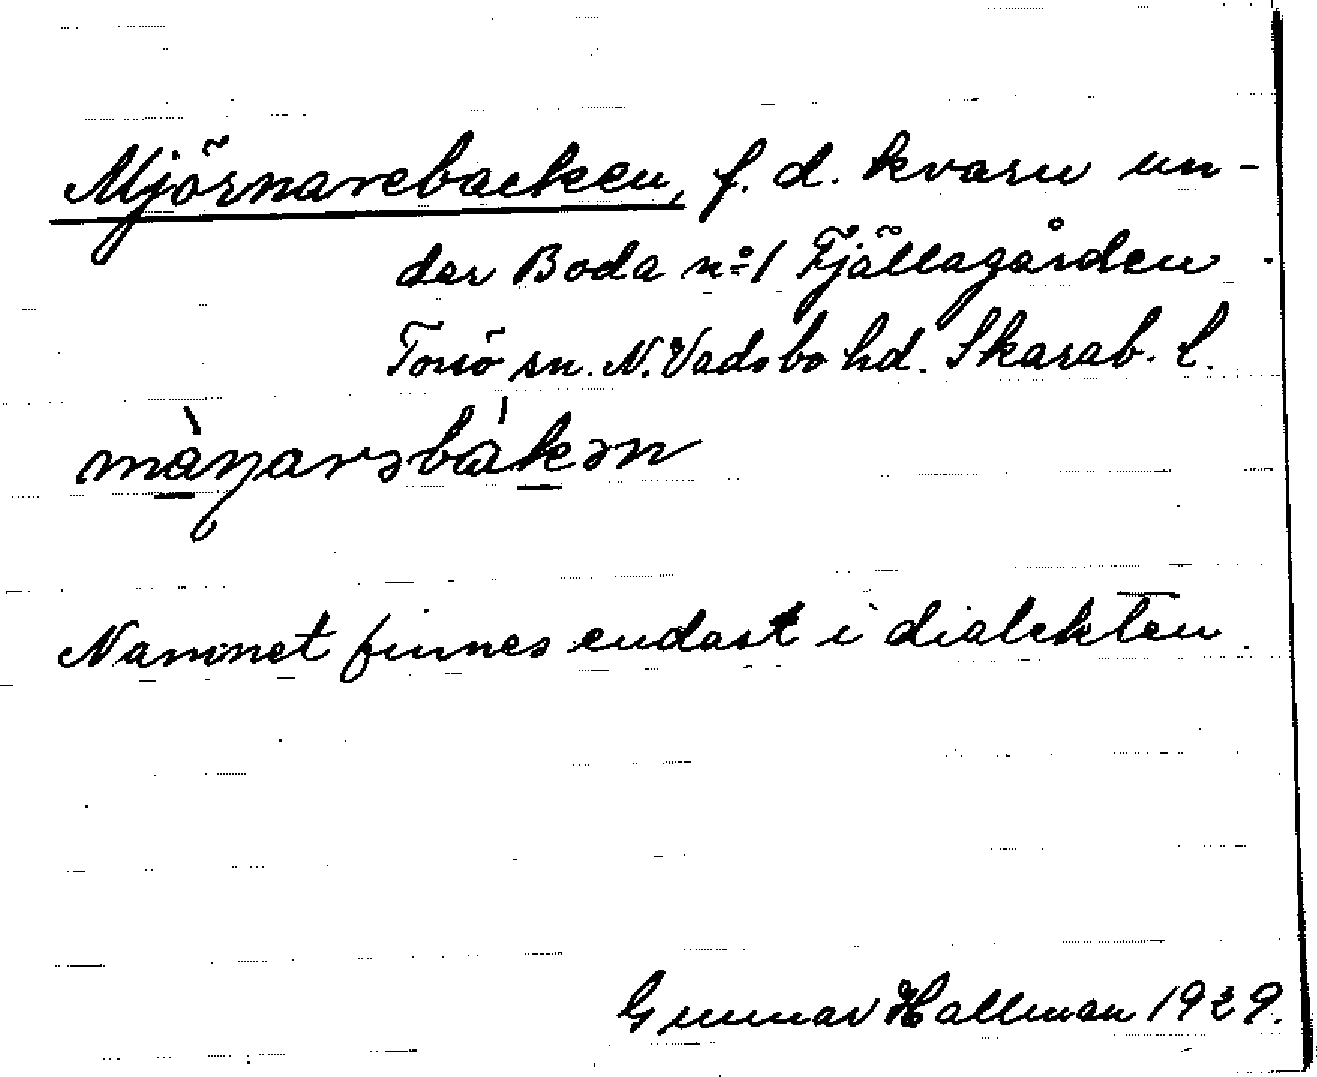 Mjörnarebacken, f. d. kvarn un-
der Boda nº 1 Fjällagården
Torsö sn. N. Vadsbo hd. Skarab. l.
Namnet finnes endast i dialekten
Gunnar Hallman 1929.